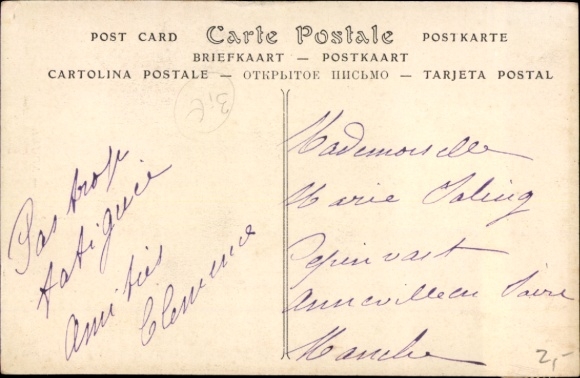 POST CARD Carte Postale POSTKARTE
BRIEFKAART — POSTKAART
CARTOLINA POSTALE — ОТКРЫТОЕ ПИСЬМО — TARJETA POSTAL
Pas trop
fatiguée
Amitiés
Clémence
Mademoiselle
Marie
Anneville en Saire
Manche
2,-